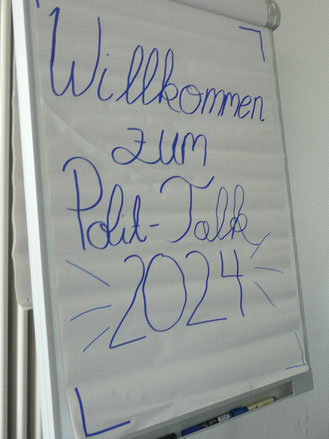 Willkommen
zum
Polit-Talk
2024